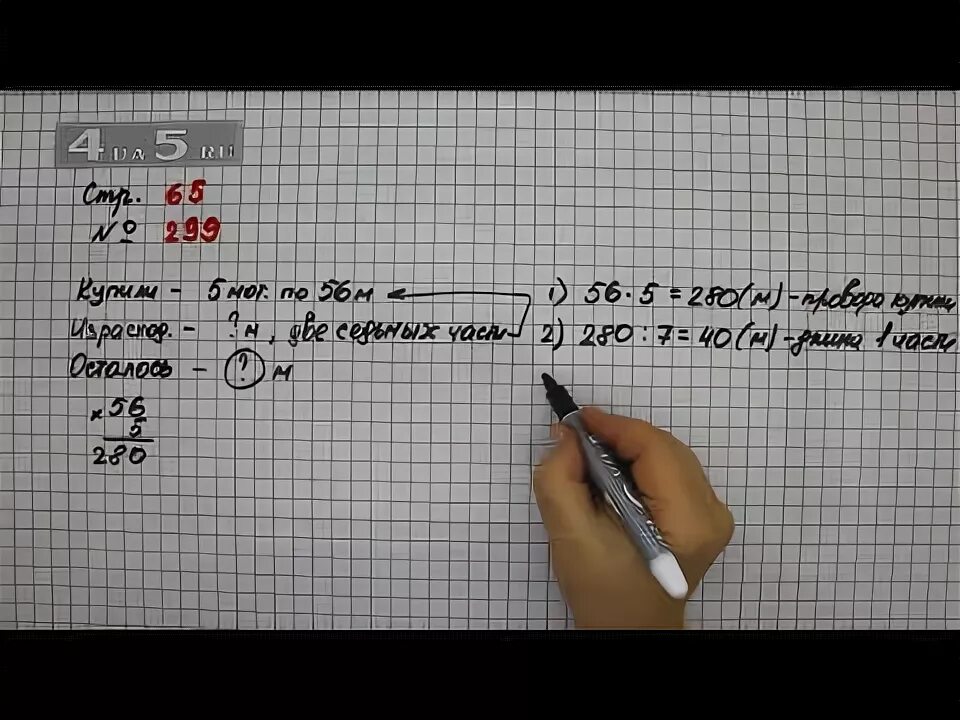 4 НА 5 RU
Стр. 65
№ 299
Купили - 5 мот. по 56 м
Израсход. - ? м, две седьмых части
Осталось - ? м
× 56
5
280
1) 56 · 5 = 280 (м) - провода купили
2) 280 : 7 = 40 (м) - длина 1 части